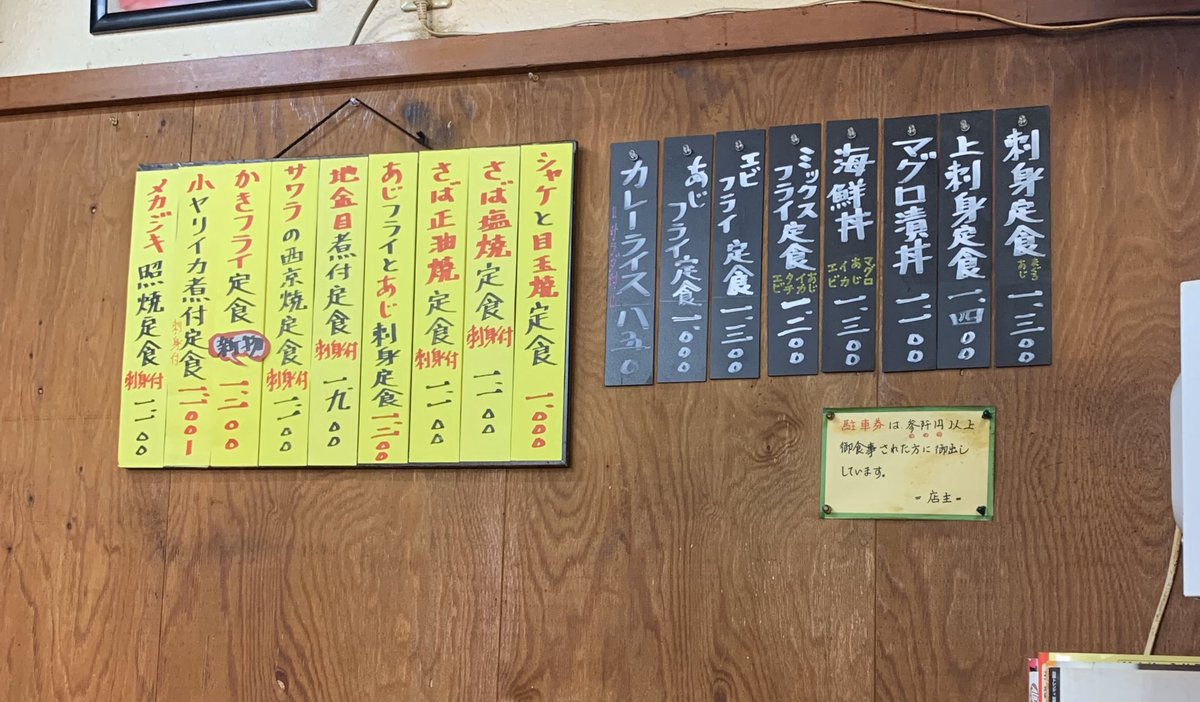 刺身定食 まぐろ あじ 一、三〇〇
上刺身定食 一、四〇〇
マグロ漬丼 一、一〇〇
海鮮丼 マグロ あじ イカ エビ 一、三〇〇
ミックスフライ定食 あじ イカ タチ エビ 一、二〇〇
エビフライ定食 一、三〇〇
あじフライ定食 一、〇〇〇
カレーライス 八五〇
シャケと目玉焼定食 一、〇〇〇
さば塩焼定食 刺身付 一、一〇〇
さば正油焼定食 刺身付 一、一〇〇
あじフライとあじ刺身定食 一、二〇〇
地金目煮付定食 刺身付 一、九〇〇
サワラの西京焼定食 刺身付 一、一〇〇
かきフライ定食 一、二〇〇
小ヤリイカ煮付定食 刺身付 一、〇〇
メカジキ照焼定食 刺身付 一、一〇〇
駐車券は参阡円以上
御食事された方に御出し
しています。
店主